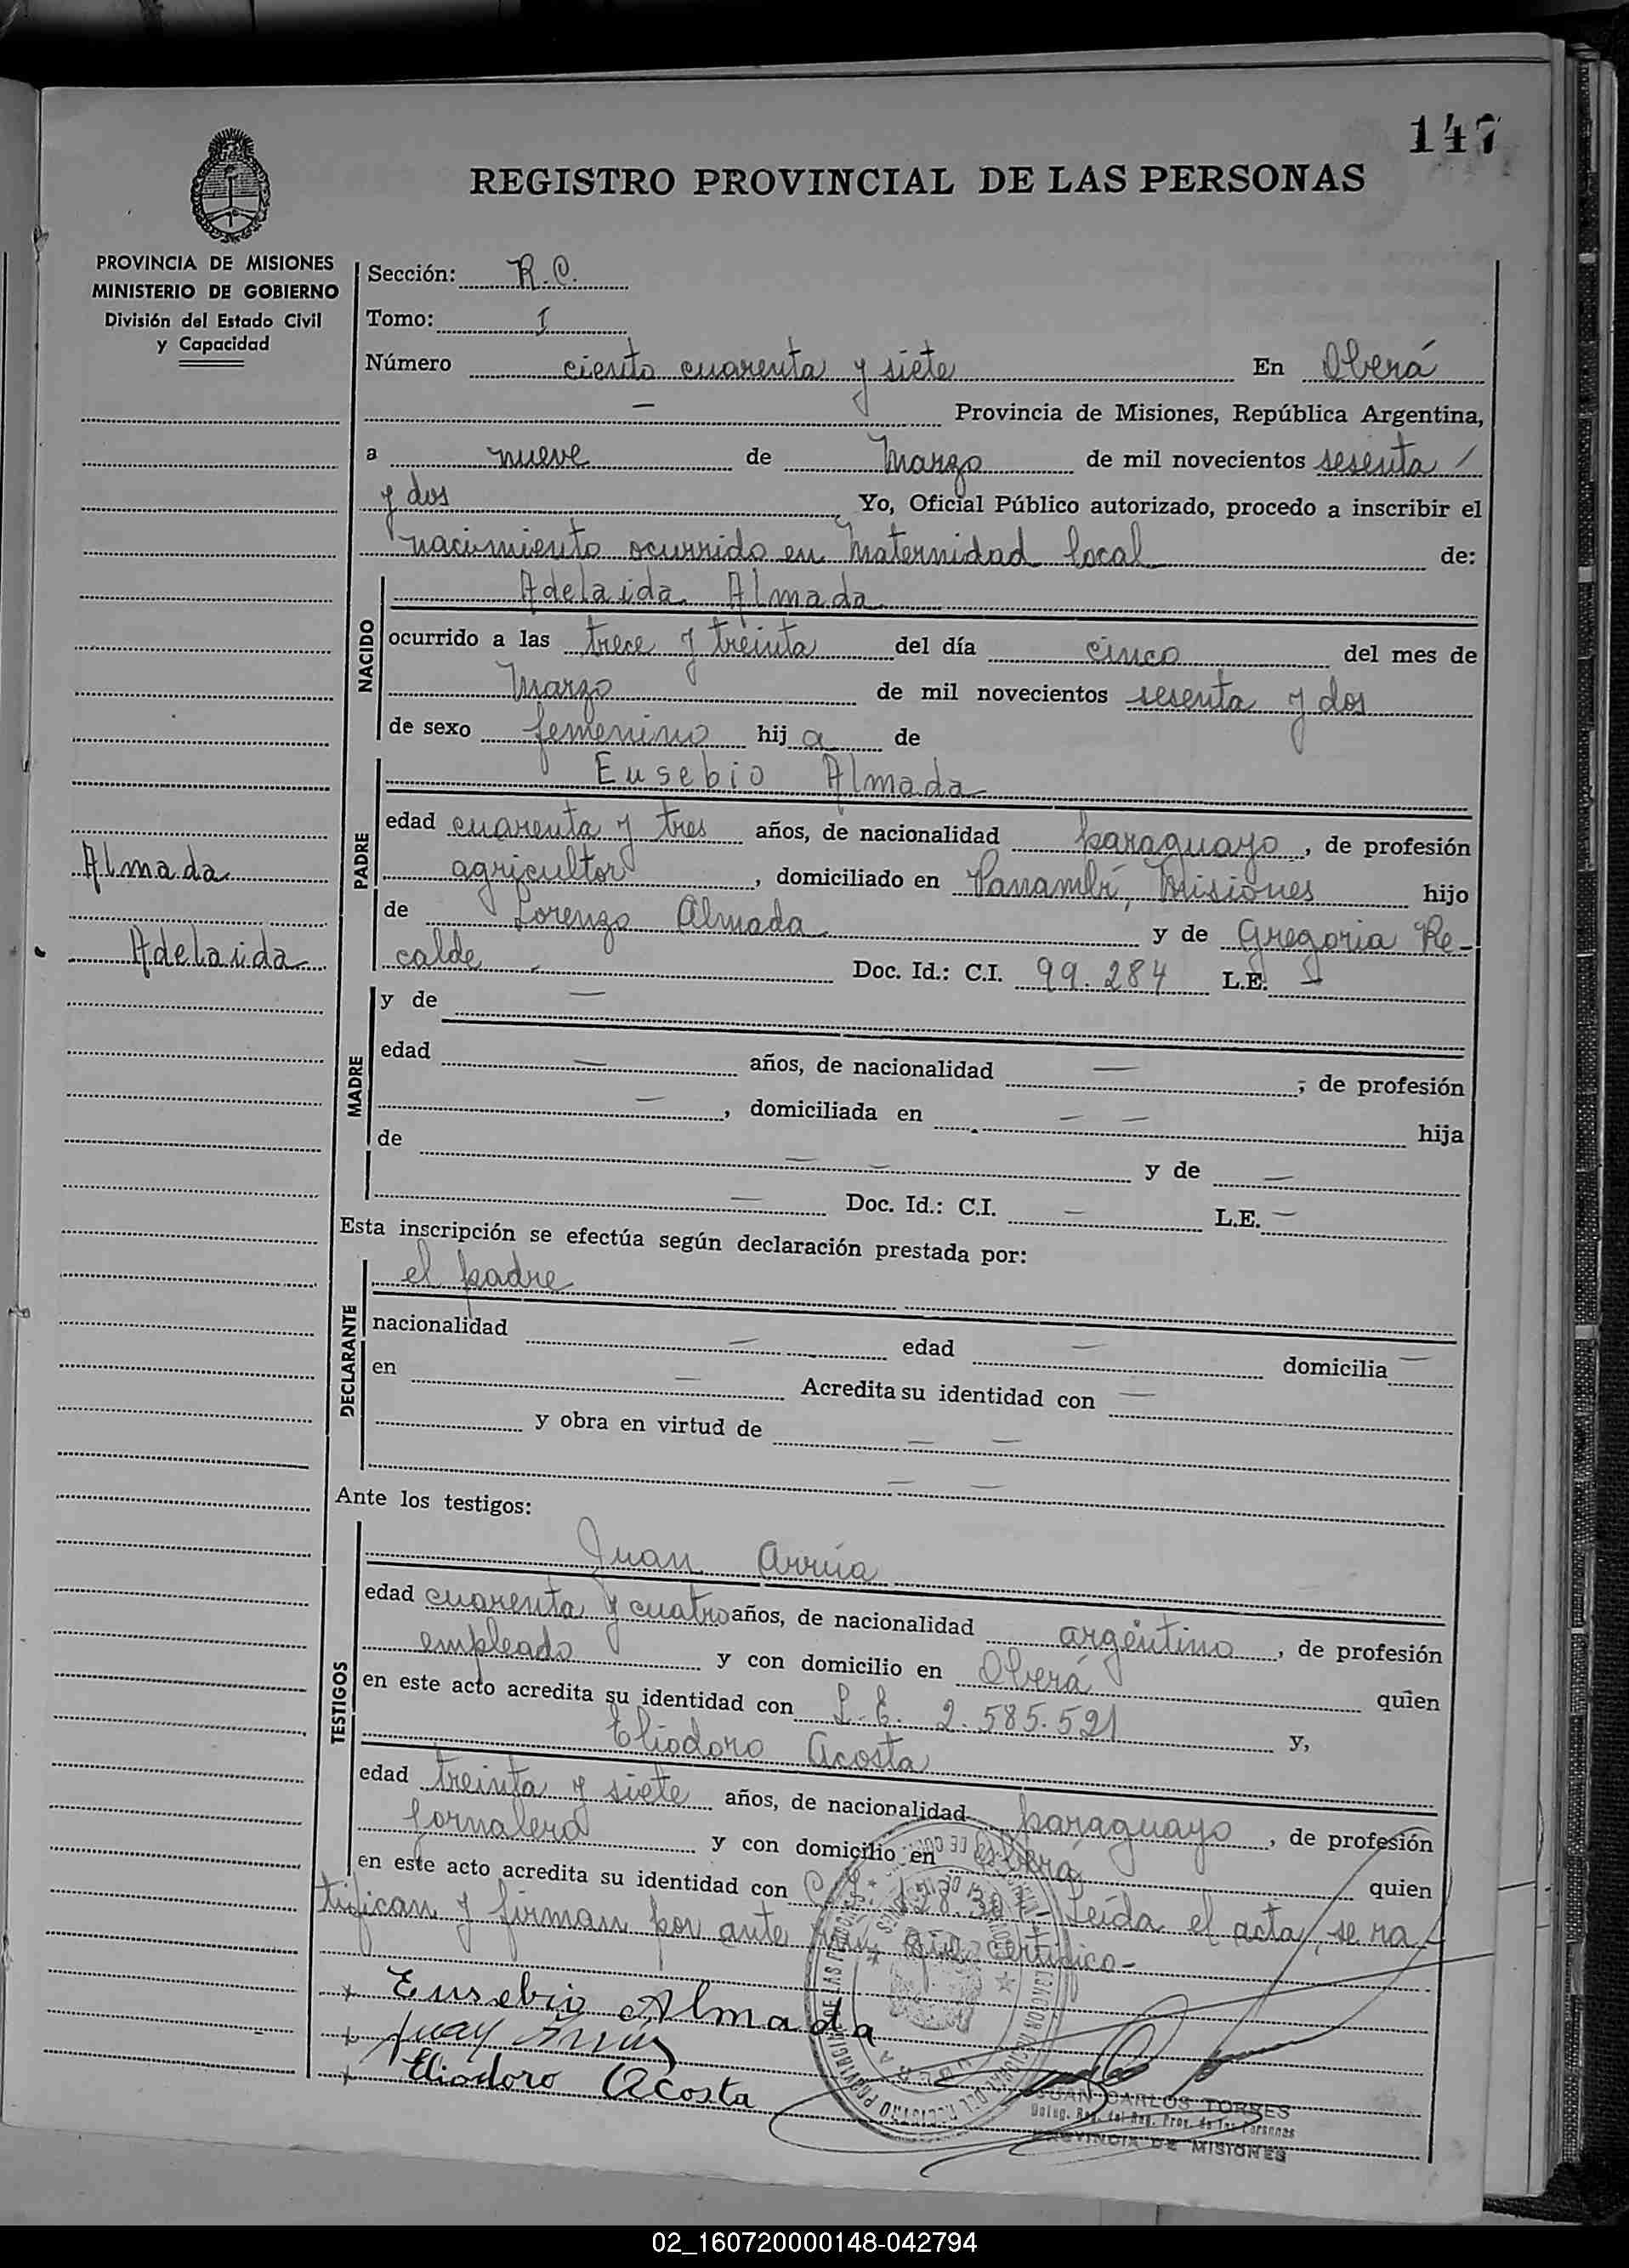 147
REGISTRO PROVINCIAL DE LAS PERSONAS
PROVINCIA DE MISIONES
MINISTERIO DE GOBIERNO
División del Estado Civil
y Capacidad
Sección: R.C.
Tomo: I
Número ciento cuarenta y siete En Oberá
— Provincia de Misiones, República Argentina,
a nueve de Marzo de mil novecientos sesenta /
y dos Yo, Oficial Público autorizado, procedo a inscribir el
nacimiento ocurrido en Maternidad local de:
NACIDO
Adelaida Almada
ocurrido a las trece y treinta del día cinco del mes de
Marzo de mil novecientos sesenta y dos
de sexo femenino hij a de
PADRE
Eusebio Almada
edad cuarenta y tres años, de nacionalidad paraguayo, de profesión
agricultor, domiciliado en Panambí, Misiones hijo
de Lorenzo Almada y de Gregoria Re-
calde - Doc. Id.: C.I. 99.284 L.E. —
Almada
Adelaida
MADRE
y de —
edad — años, de nacionalidad —, de profesión
—, domiciliada en — — hija
de — — y de —
— Doc. Id.: C.I. — L.E. —
Esta inscripción se efectúa según declaración prestada por:
DECLARANTE
el padre
nacionalidad — edad — domicilia —
en — Acredita su identidad con —
y obra en virtud de — —
— —
Ante los testigos:
TESTIGOS
Juan Arrúa
edad cuarenta y cuatro años, de nacionalidad argentino, de profesión
empleado y con domicilio en Oberá quien
en este acto acredita su identidad con L.E. 2.585.521 y,
Eliodoro Acosta
edad treinta y siete años, de nacionalidad paraguayo, de profesión
Jornalero y con domicilio en Oberá quien
en este acto acredita su identidad con C.I. Leída el acta, se ra-
tifican y firman por ante mí, que certifico-
x Eusebio Almada
x Juan Arrúa
x Eliodoro Acosta
JUAN CARLOS TORRES
Deleg. Reg. del Reg. Prov. de las Personas
PROVINCIA DE MISIONES
02_160720000148-042794